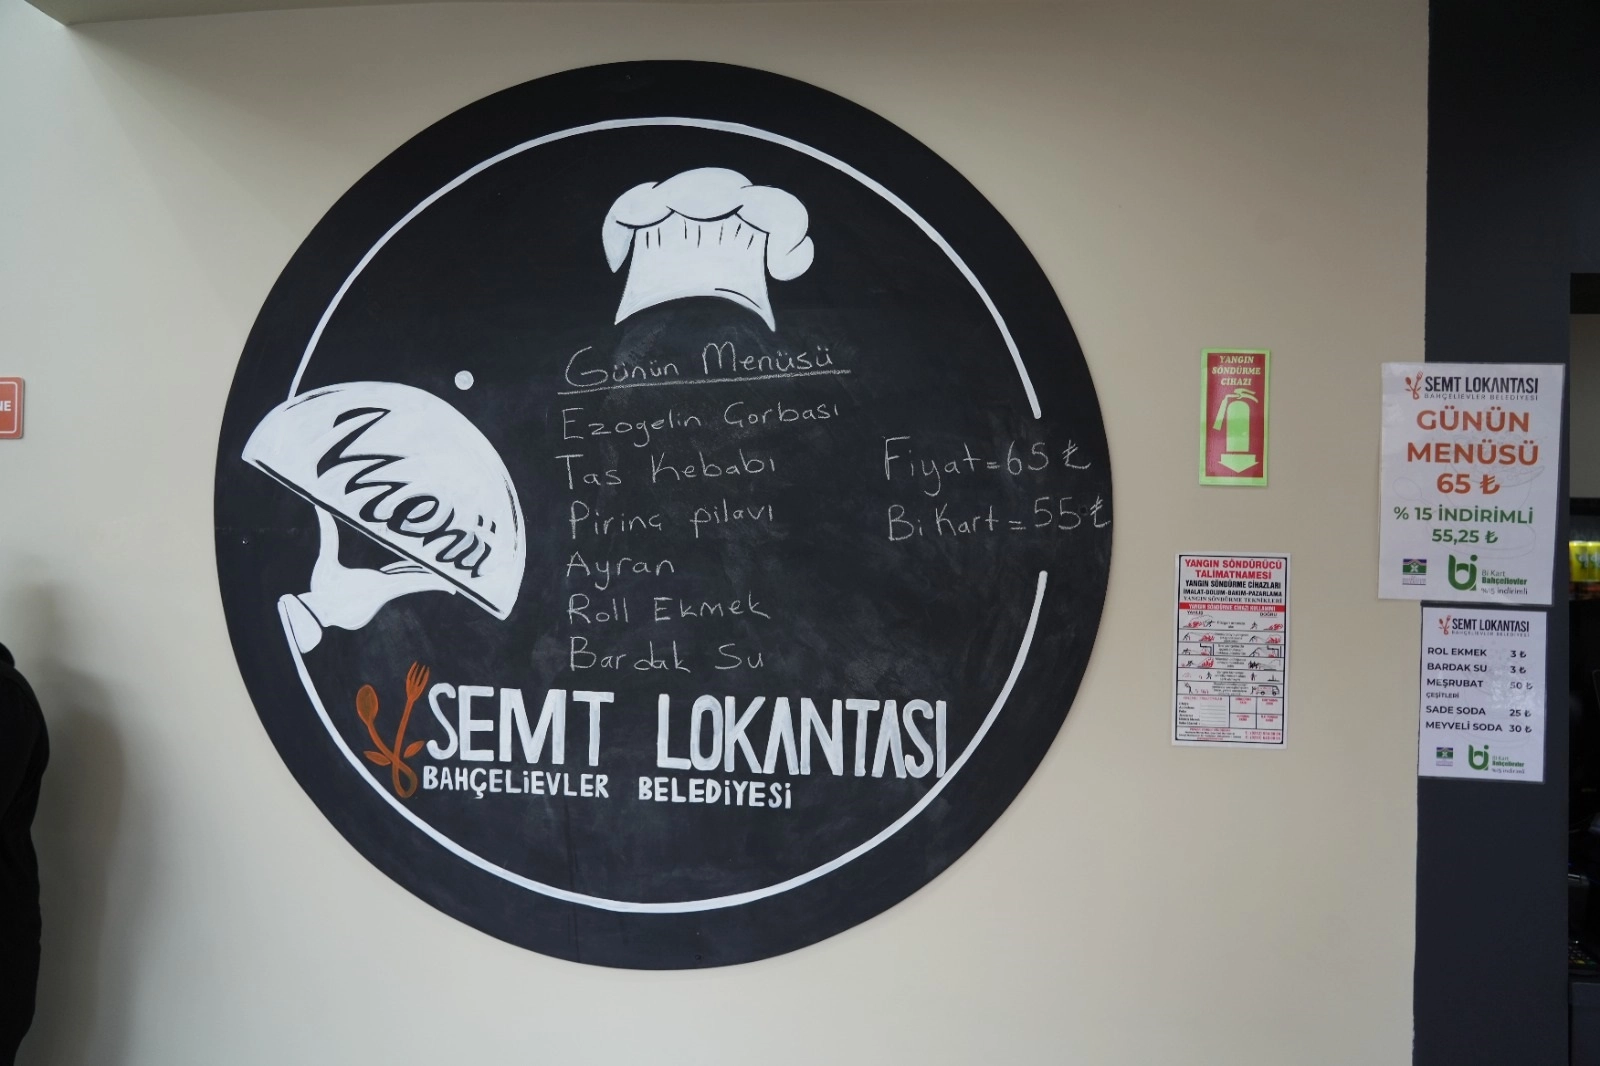 Menü
Günün Menüsü
Ezogelin Çorbası
Tas Kebabı
Pirinç pilavı
Ayran
Roll Ekmek
Bardak Su
Fiyat = 65 ₺
Bi Kart = 55 ₺
SEMT LOKANTASI
BAHÇELİEVLER BELEDİYESİ
NE
YANGIN
SÖNDÜRME
CIHAZI
YANGIN SÖNDÜRÜCÜ
TALİMATNAMESİ
YANGIN SÖNDÜRME CİHAZLARI
İMALAT-DOLUM-BAKIM-PAZARLAMA
YANGIN SÖNDÜRME TEKNİKLERİ
YANGIN SÖNDÜRME CİHAZI KULLANIMI
YANLIŞ DOĞRU
SEMT LOKANTASI
BAHÇELİEVLER BELEDİYESİ
GÜNÜN
MENÜSÜ
65 ₺
% 15 İNDİRİMLİ
55,25 ₺
Bi Kart
Bahçelievler
%15 indirimli
SEMT LOKANTASI
BAHÇELİEVLER BELEDİYESİ
ROL EKMEK 3 ₺
BARDAK SU 3 ₺
MEŞRUBAT 50 ₺
ÇEŞİTLERİ
SADE SODA 25 ₺
MEYVELİ SODA 30 ₺
Bi Kart
Bahçelievler
%15 indirimli